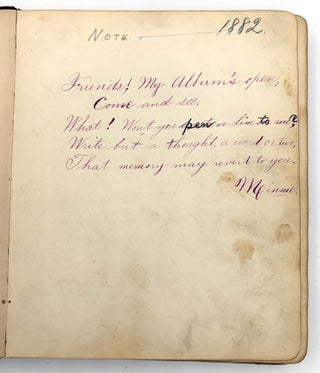 NOTE. 1882.
Friends! My Album's open,
Come and see,
What! Won't you pen a line to me?
Write but a thought, a word or two,
That memory may revert to you.
Minnie.